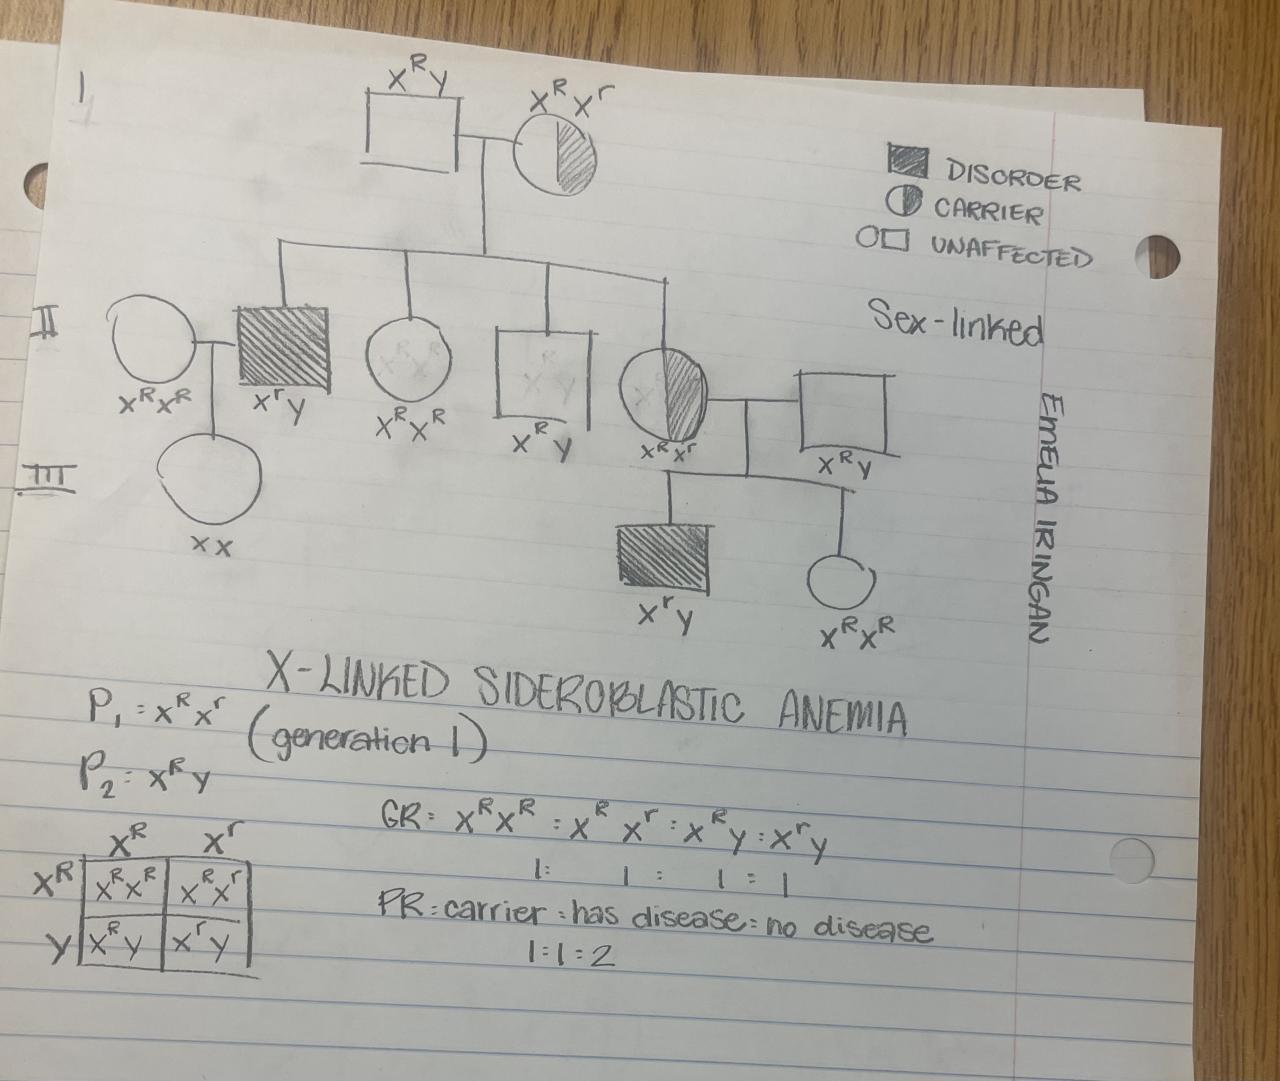 1
X^R y
X^R X^r
DISORDER
CARRIER
UNAFFECTED
Sex-linked
EMELIA IRINGAN
II
X^R X^R
X^r y
X^R X^R
X^R y
X^R X^r
X^R y
III
XX
X^r y
X^R X^R
X-LINKED SIDEROBLASTIC ANEMIA
P₁ = X^R X^r (generation 1)
P₂ = X^R y
GR: X^R X^R : X^R X^r : X^R y : X^r y
1 : 1 : 1 : 1
PR: carrier : has disease : no disease
1:1:2
X^R X^r
X^R X^R X^R X^r
y X^R y X^r y